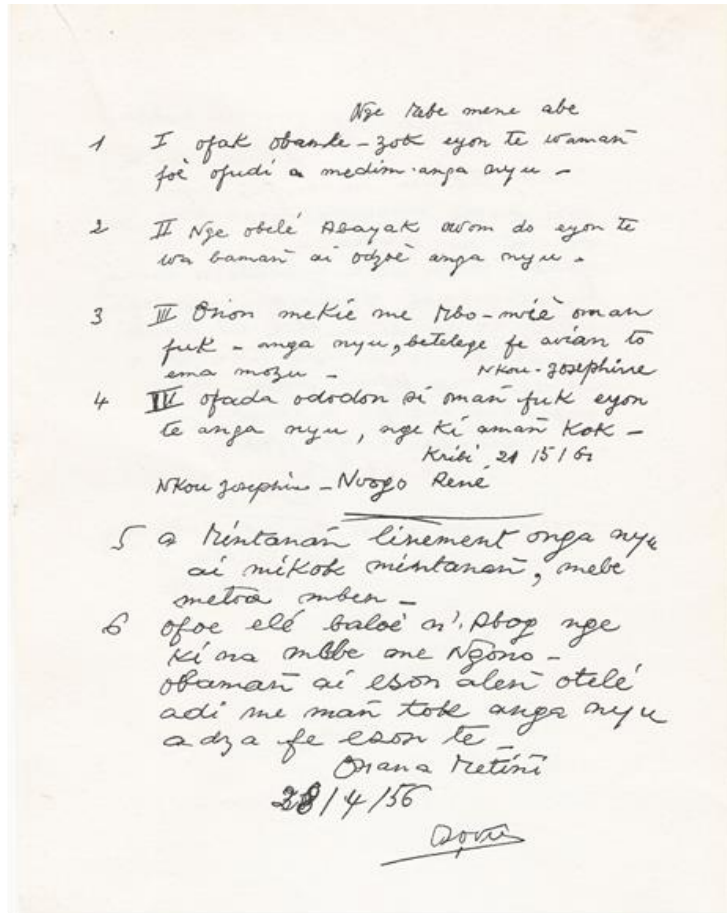 Nge Mbe mene abe
1 I ofak obande - zok eyon te wamañ
foè ofudi a medim anga nyu -
2 II Nge obelé Asayak avom do eyon te
wa bamañ ai odzoè anga nyu -
3 III Onon mekié me Mbo-mvié oman
fuk - anga nyu, betelege fe avian to
ema mozu - Nkou-Josephine
4 IV ofada ododon si omañ fuk eyon
te anga nyu, nge ki amañ kok -
Kribi 21 /5 /
Nkou Josephine - Nvogo René
5 a Mintanañ linement onga nyu
ai mikok mintanañ, mebe
metoa mben -
6 ofoe elé baloè n'Abog nge
ki na mbbe me Ngono -
obamañ ai eson aleñ otelé
adi me mañ tok anga nyu
a dza fe eson te -
Osana Metini
28/4/56